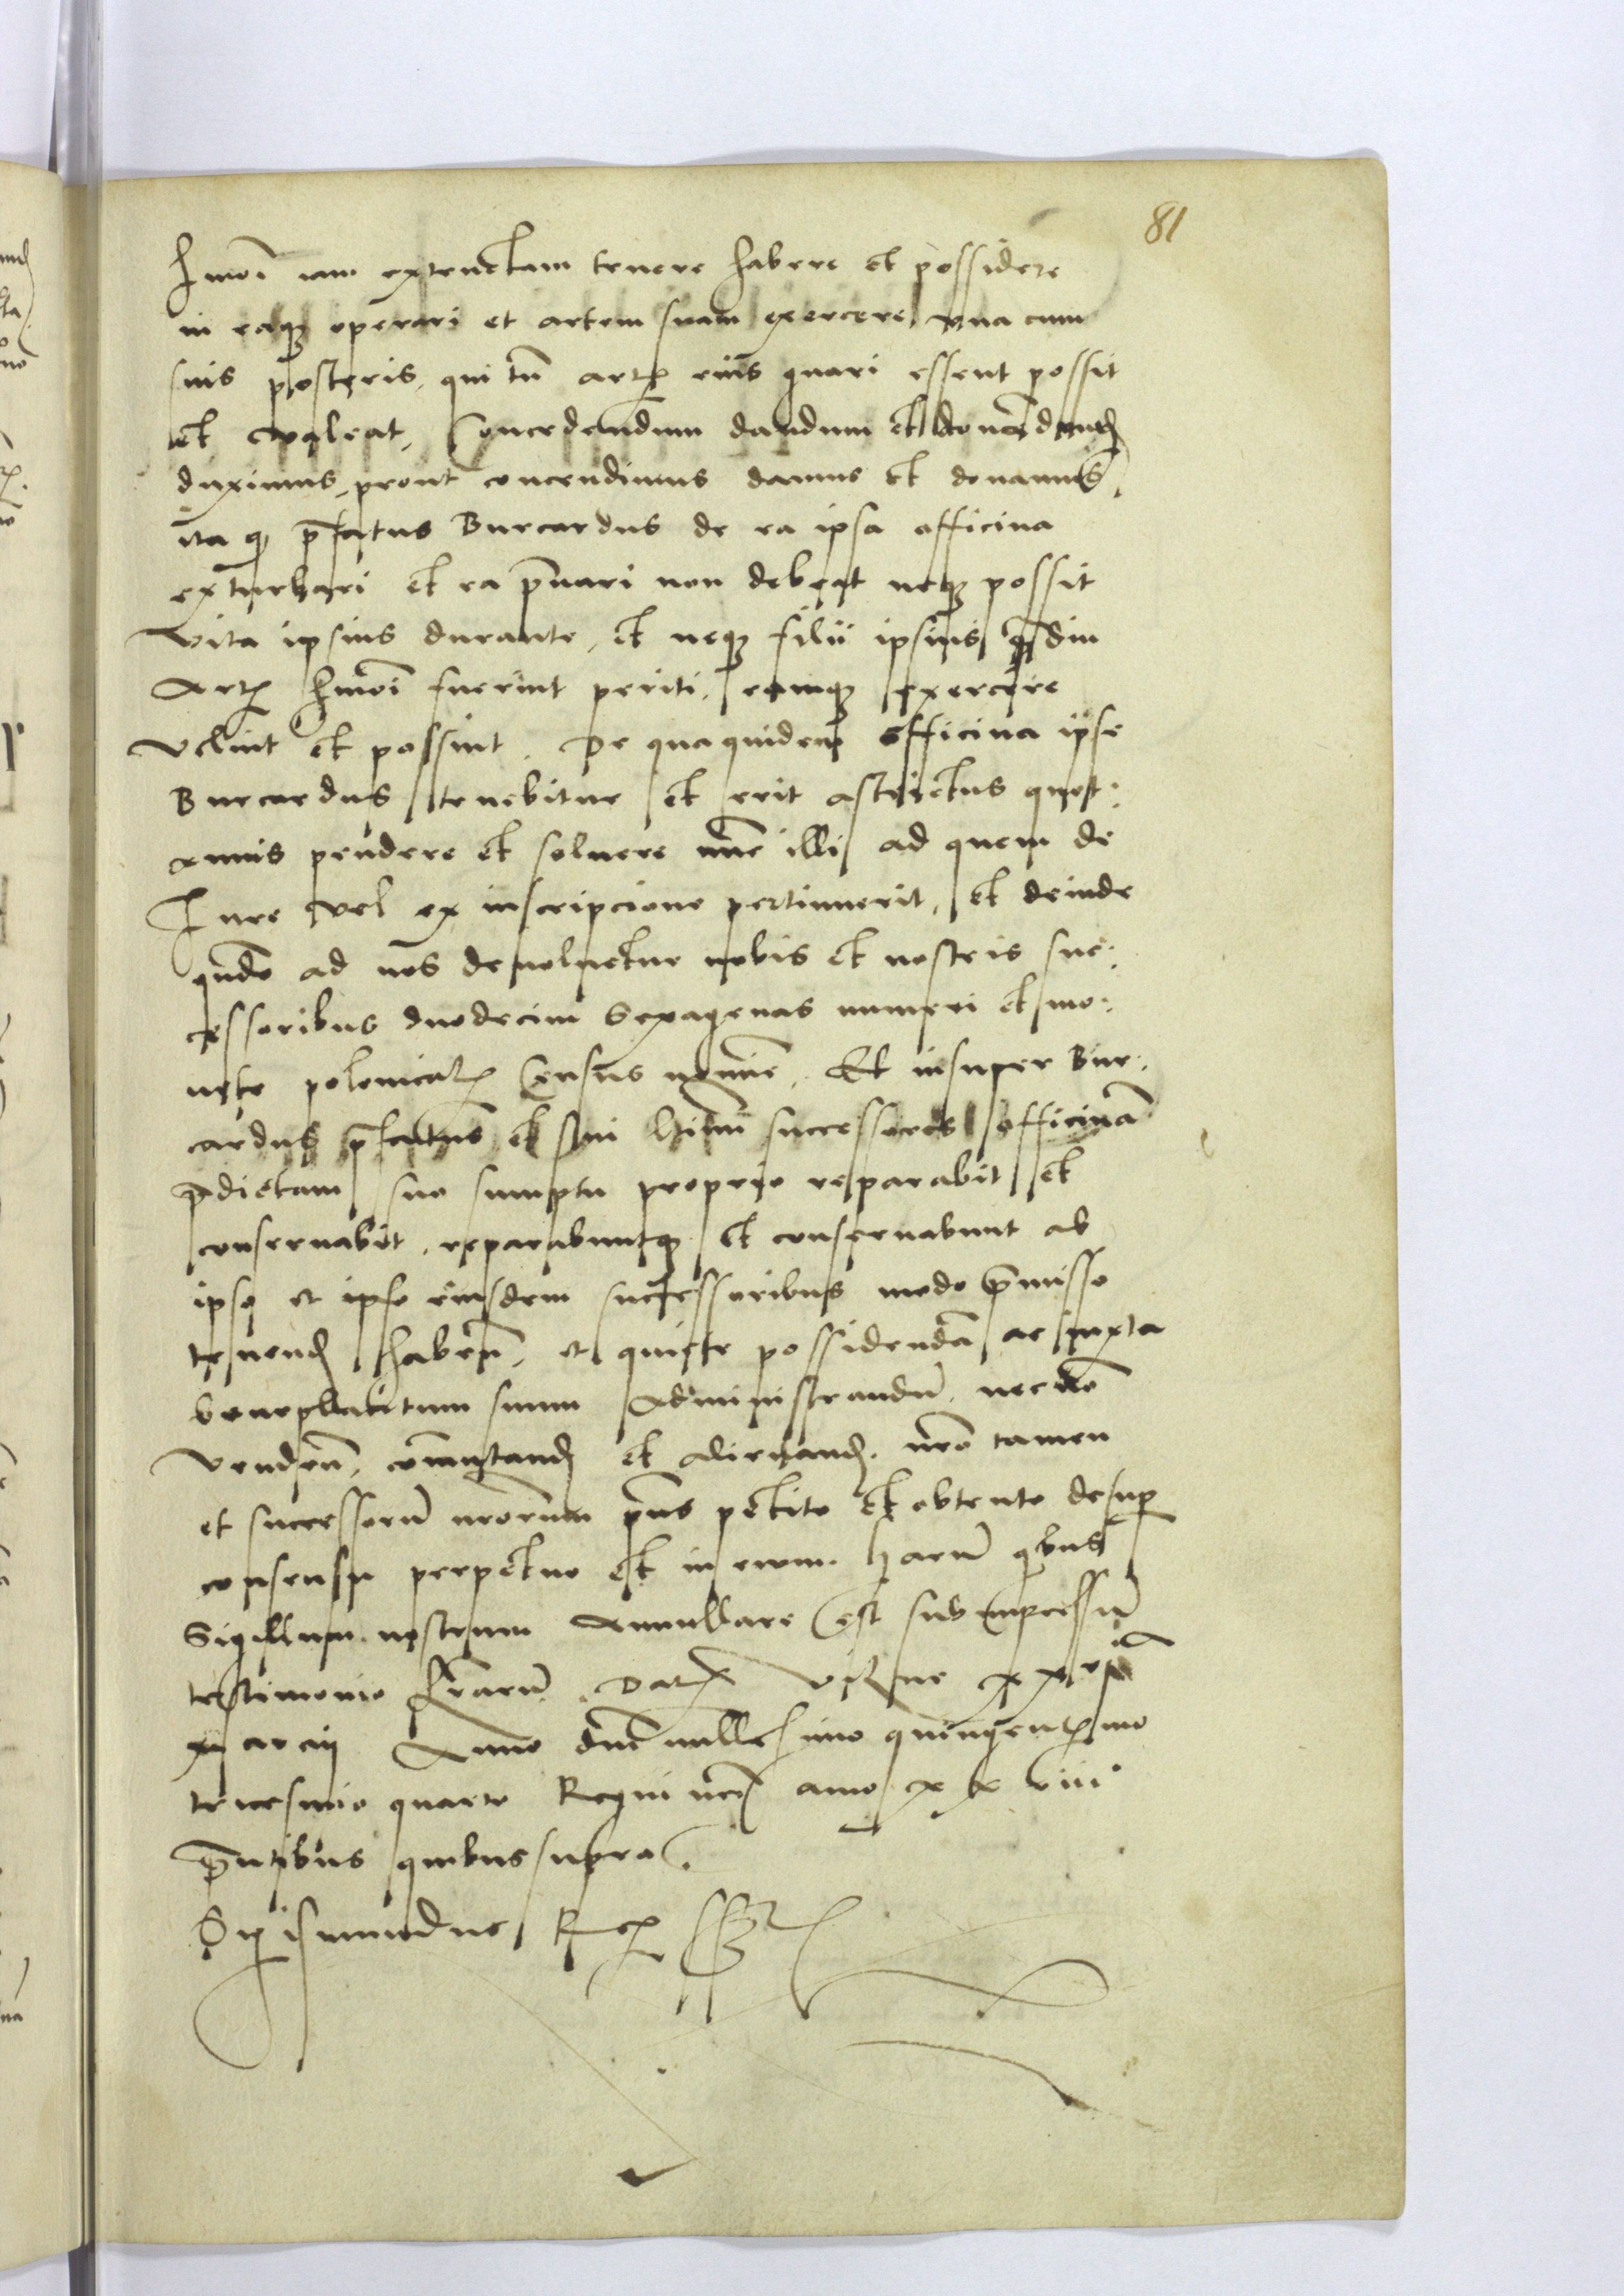 81
hmoi iam extructam tenere habere et possidere
in eaque operari et artem suam exercere una cum
suis posteris, qui tn artis eius gnari essent possit
et valeat, Concedendum dandum et donandum
duximus, prout concendimus damus et donamus,
ita q prefatus Burcardus de ea ipsa officina
exturbari et ea privari non debeat neque possit
vita ipsius durante, et neque filii ipsius qmdiu
Artis hmoi fuerint periti, eamque exercere
velint et possint. De qua quidem officina ipse
Burcardus tenebitur et erit astrictus quot:
annis pendere et solvere nunc illi ad quem de
Iure vel ex inscripcione pertinuerit, et deinde
qndo ad nos devolvetur nobis et nostris suc:
cessoribus duodecim Sexagenas numeri et mo:
nete polonicalis Census nomine. Et insuper Bur:
cardus prefatus et sui ltimi successores officinam
predictam suo sumptu proprio reparabit et
conservabit, reparabuntque et conservabunt ab
ipso et ipse eiusdem successoribus modo premisso
tenend haben, et quiete possidendam ac iuxta
beneplacitum suum Administrandum, nec non
venden, commutand et alienand. nro tamen
et successorum nrorum prius petito et obtento desuper
consensu perpetuo et in evum. harum qbus
Sigillum nostrum Annullare est subimpressum
testimonio lrarum. Datum Vilne
marcii Anno dni millesimo quingentesimo
tricesimo quarto Regni nri anno xxviii°
prntibus quibus supra.
Sigismundus Rex sst